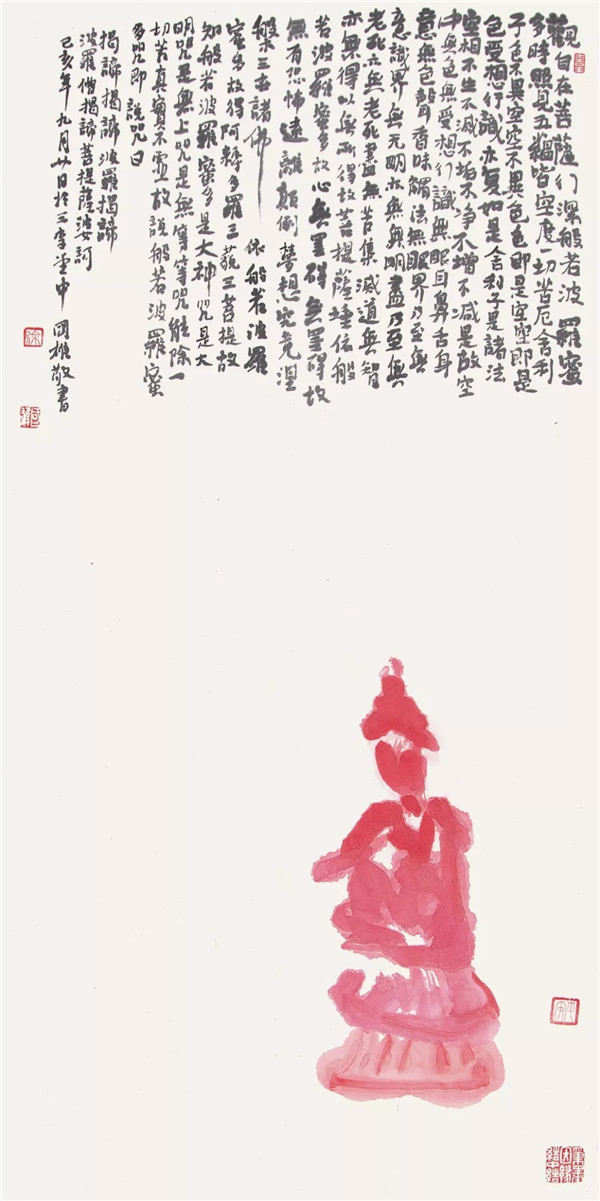 觀自在菩薩行深般若波羅蜜
多時照見五蘊皆空度一切苦厄舍利
子色不異空空不異色色即是空空即是
色受想行識亦复如是舍利子是諸法
空相不生不滅不垢不净不增不减是故空
中無色無受想行識無眼耳鼻舌身
意無色聲香味觸法無眼界乃至無
意識界無无明亦無無明盡乃至無
老死亦無老死盡無苦集滅道無智
亦無得以無所得故菩提薩埵依般
若波羅蜜多故心無罣礙無罣碍故
無有恐怖遠離顛倒夢想究竟涅
槃三世諸佛 依般若波羅
蜜多故得阿耨多羅三藐三菩提故
知般若波羅蜜多是大神咒是大
明咒是無上咒是無等等咒能除一
切苦真實不虛故說般若波羅蜜
多咒即說咒曰
揭諦揭諦波羅揭諦
波羅僧揭諦菩提薩婆訶
己亥年九月廿日於三李堂中 國雄敬書